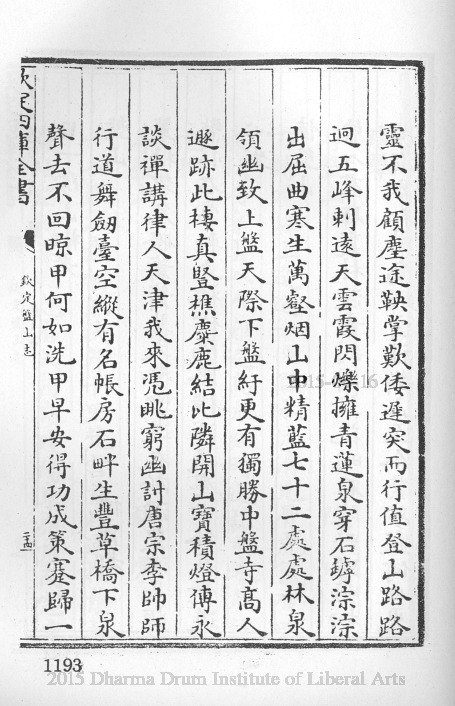 靈不我顧塵途鞅掌歎倭遲突而行值登山路路
迥五峰刺遠天雲霞閃爍擁青蓮泉穿石罅淙淙
出屈曲寒生萬壑烟山中精藍七十二處處林泉
領幽致上盤天際下盤紆更有獨勝中盤寺髙人
遯跡此棲真豎樵麋鹿結比隣開山寶積燈傳永
談禪講律人天津我來凭眺窮幽討唐宗李帥師
行道舞劔臺空縱有名帳房石畔生豐草橋下泉
聲去不回晾甲何如洗甲早安得功成策蹇歸一
欽定四庫全書
欽定盤山志
1193
2015 Dharma Drum Institute of Liberal Arts